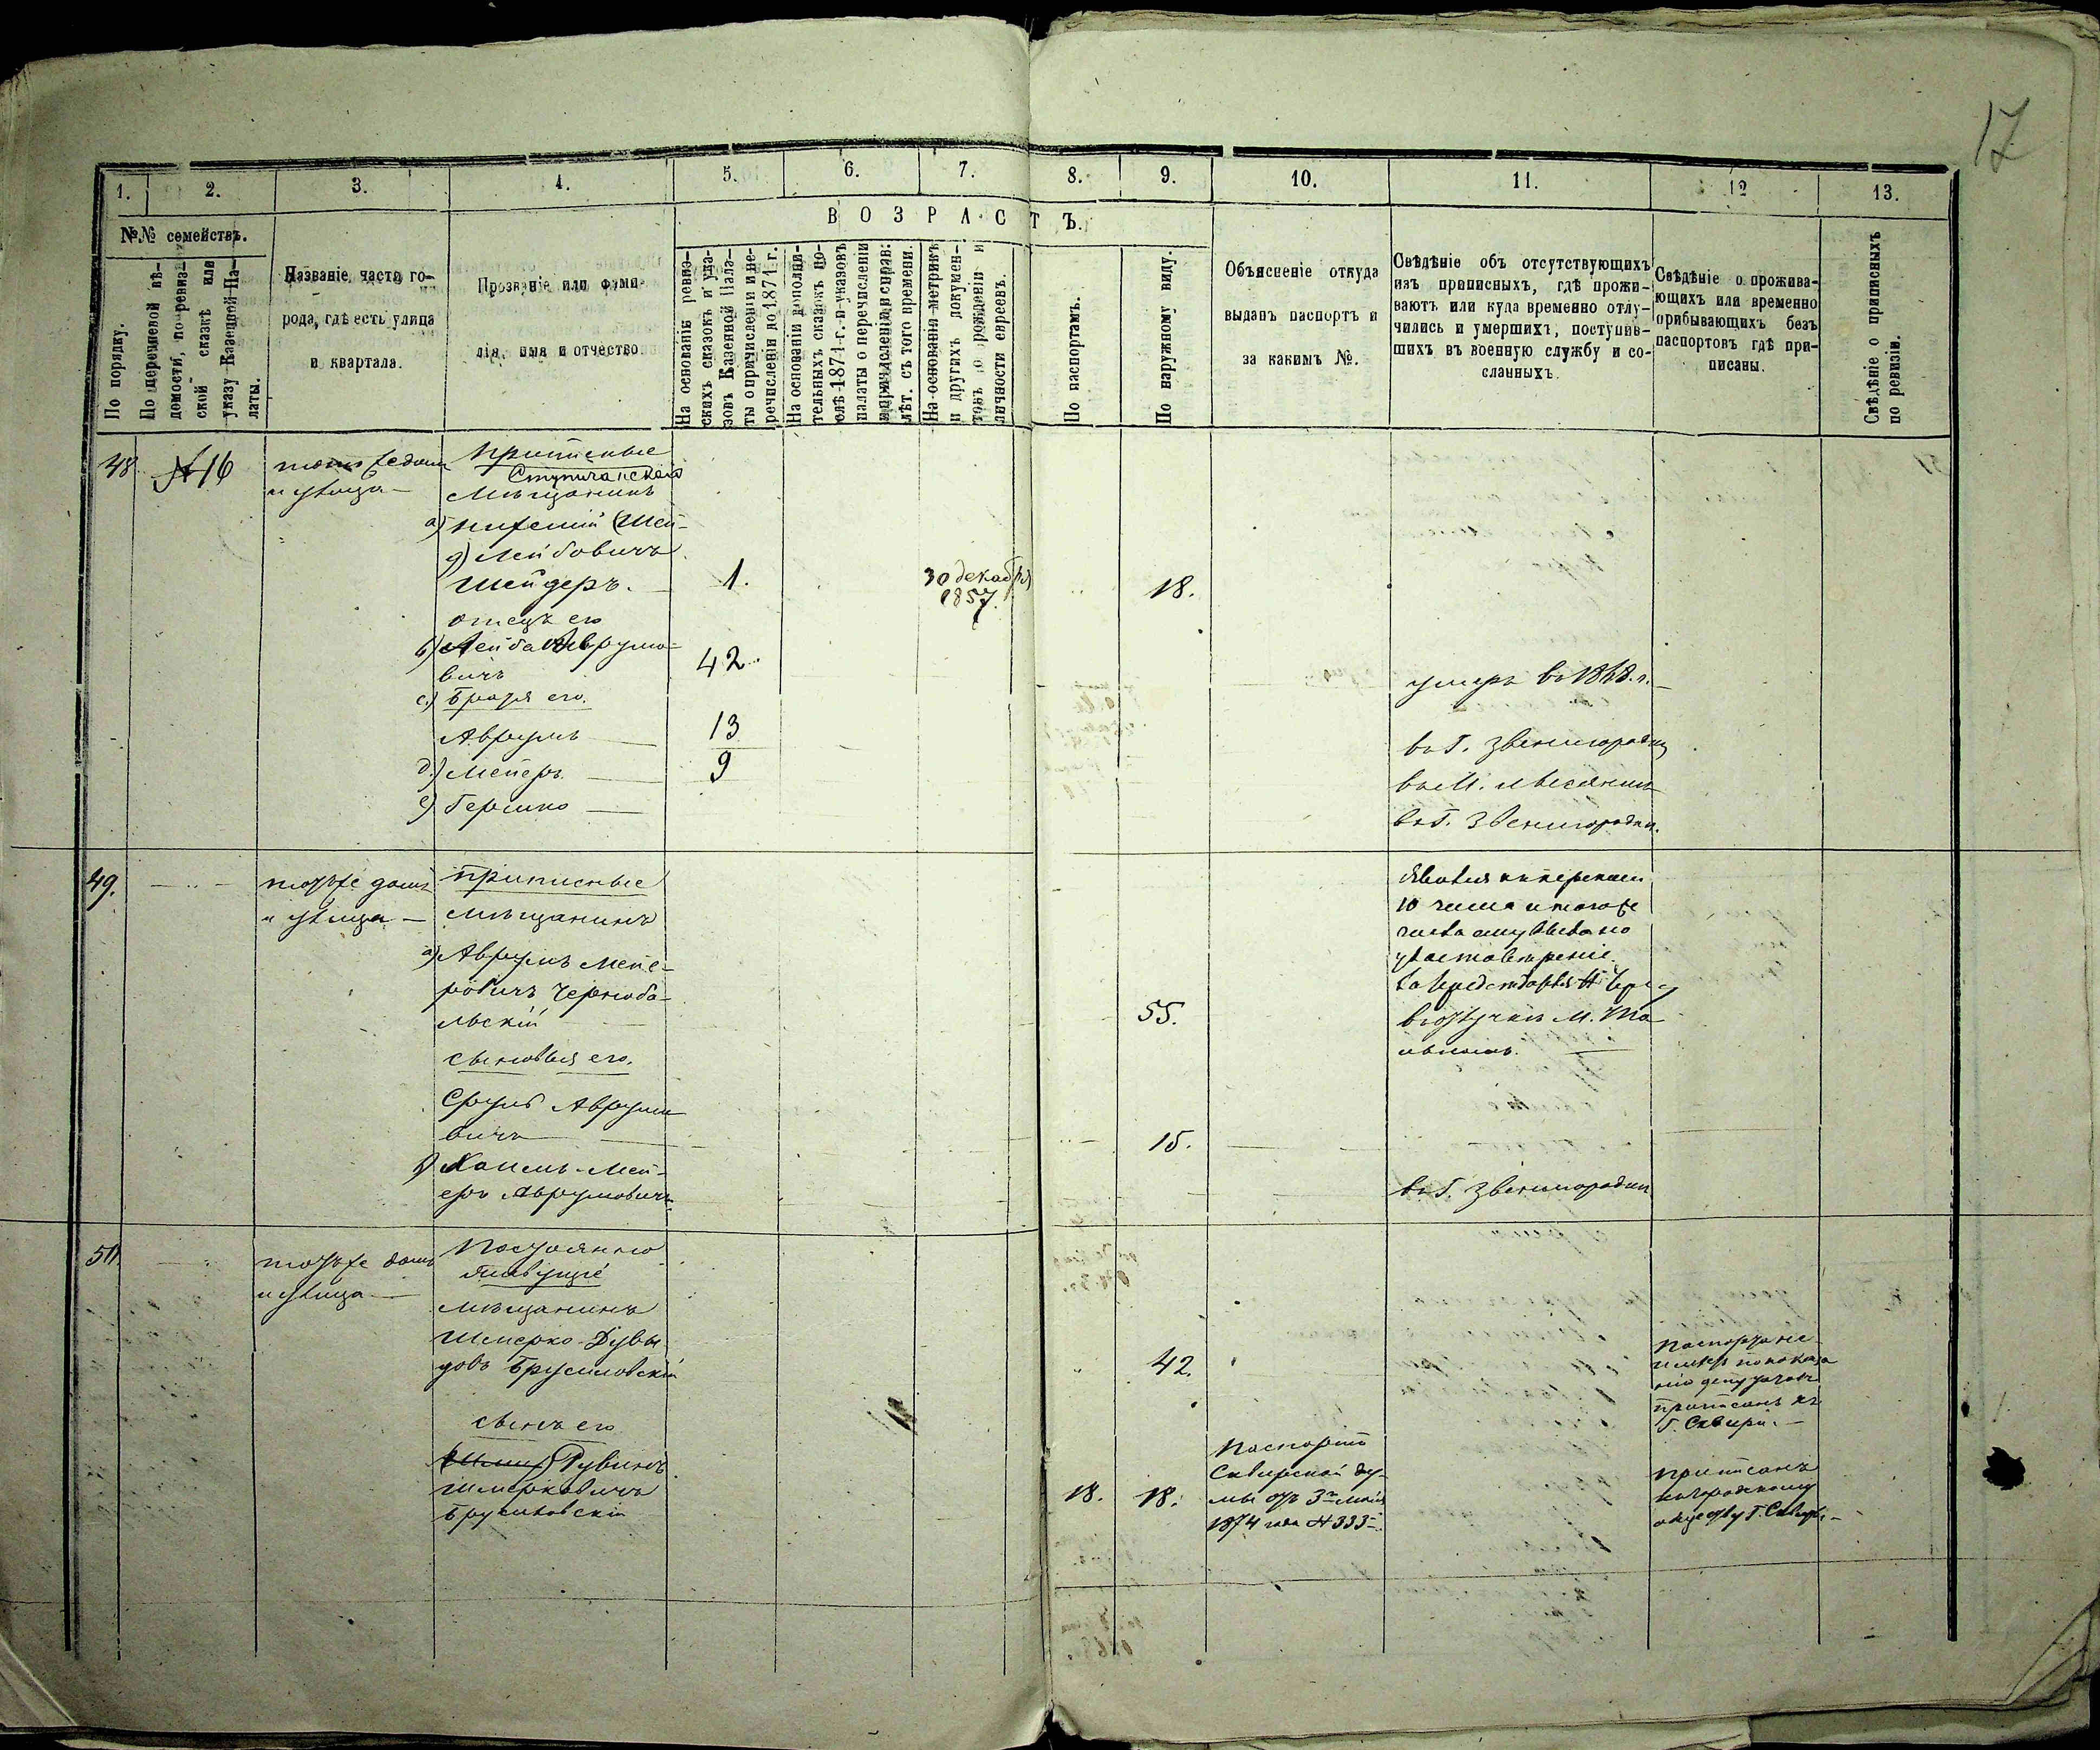 17
1. 2. 3. 4. 5. 6. 7. 8. 9. 10. 11. 12 13.
№№ семействъ.
По порядку.
По перечневой вѣ-
домости, по ревиз-
ской сказкѣ или
указу Казенной Па-
латы.
Названіе части го-
рода, гдѣ есть улица
и квартала.
Прозваніе или фами-
лія, имя и отчество.
ВОЗРАСТЪ.
На основаніи ревиз-
скихъ сказокъ и ука-
зовъ Казенной Пала-
ты о причисленіи и пе-
речисленіи до 1874 г.
На основаніи дополни-
тельныхъ сказокъ по-
слѣ 1874 г. и указовъ
палаты о перечисленіи
и причисленіи и справ:
лѣт. съ того времени.
На основаніи метрикъ
и другихъ докумен-
товъ о рожденіи и
личности евреевъ.
По паспортамъ.
По наружному виду.
Объясненіе откуда
выданъ паспортъ и
за какимъ №.
Свѣдѣніе объ отсутствующихъ
изъ приписныхъ, гдѣ прожи-
ваютъ или куда временно отлу-
чились и умершихъ, поступив-
шихъ въ военную службу и со-
сланныхъ.
Свѣдѣніе о прожива-
ющихъ или временно
прибывающихъ безъ
паспортовъ гдѣ при-
писаны.
Свѣдѣніе о приписныхъ
по ревизіи.
48 №16
домъ
и улица
приписные
мѣщанинъ
а)
Лейбовичъ
Шнейдеръ. 1. 30 декабря 18.
1857.
отецъ его
b) Лейба Аврумо-
вичъ 42 умеръ въ 1868. г.
c.) Братья его.
Аврумъ 13 въ Г. Звенигородкѣ
d.) Мейеръ 9 въ М. Лысянкѣ
e) Гершко въ Г. Звенигородкѣ.
49. тотъ же домъ
и улица
приписные
мѣщанинъ
а) Аврумъ Мейе-
ровичъ Чернобы-
льскій 55.
10 числа и того же
числа ему
М.
сыновья его.
Сруль Аврумо
вичъ 15.
b) Мей-
еръ Аврумовичъ въ Г. Звенигородкѣ
50. тотъ же домъ
и улица
Постоянно
живущіе
мѣщанинъ
Шмерко Дувы-
довъ Брусиловскій 42.
Паспорта не
имѣетъ по показа
нію депутатовъ
приписанъ къ
Г. Сквирѣ.
сынъ его
Рувинъ
Шмерковичъ
Брусиловскій 18. 18.
Паспортъ
Сквирской ду-
мы отъ 3го мая
1874 года № 333
приписанъ
къ городскому
обществу Г. Сквиры